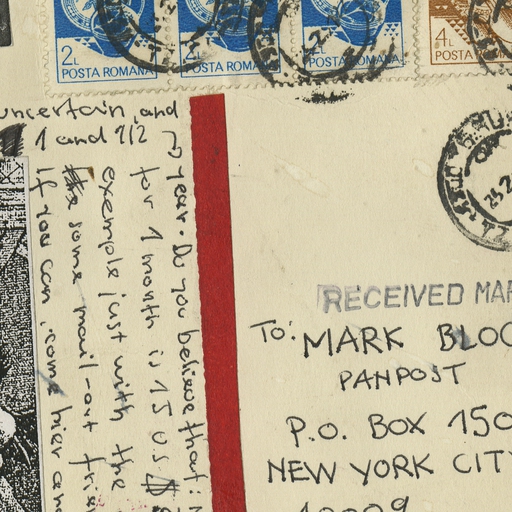 2L
POSTA ROMANA
2L
POSTA ROMANA
2L
POSTA ROMANA
4L
POSTA ROMANA
uncertain, and
1 and 1/2
year. Do you believe that:
for 1 month is 15 US $
exemple just with the
some mail-art
If you can, come hier and
RECEIVED MAR
TO: MARK BLOC
PANPOST
P.O. BOX 150
NEW YORK CITY
10009